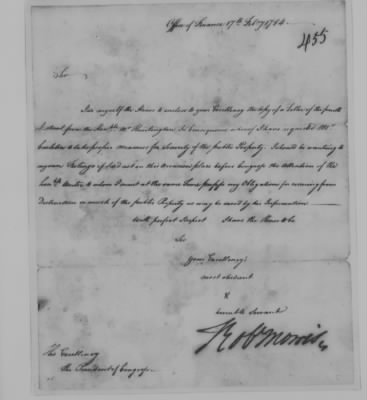 Office of Finance 17th Feby 1784.
455
Sir
I do myself the Honor to enclose to your Excellency the Copy of a Letter of the fourth
Instant from the Honble. Mr. Huntington. In Consequence whereof I have requested Mr.
to take proper measures for Security of the public Property. I should be wanting to
my own Feelings if I did not on this Occasion place before Congress the Attention of the
Honble. to whom I must at the same time profess my Obligations for removing from
Destruction so much of the public Property as may be saved by his Information
With perfect Respect I have the Honor to be
Sir
your Excellency's
most obedient
&
humble Servant
Robt Morris
His Excellency
The President of Congress.